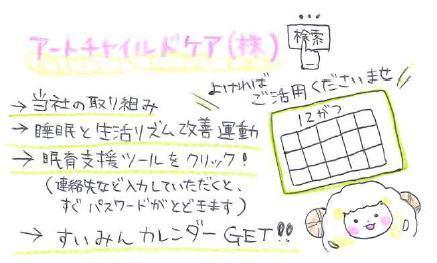 アートチャイルドケア(株)
検索
よければ
ご活用くださいませ
→当社の取り組み
→睡眠と生活リズム改善運動
→眠育支援ツールをクリック!
(連絡先など入力していただくと、
すぐパスワードがとどきます)
→すいみんカレンダーGET!!
12がつ